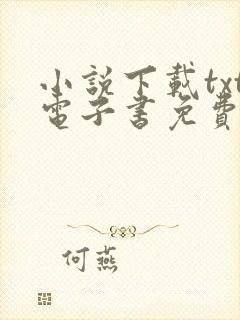 小說下載txt
電子書免費
何燕